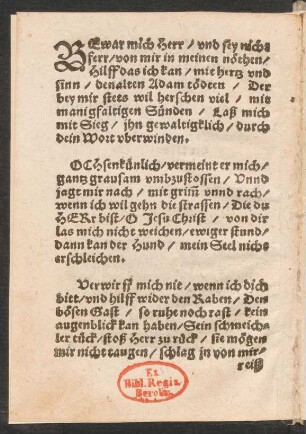 BEwar mich Herr / vnd sey nicht
ferr / von mir in meinen nöthen /
Hilff das ich kan / mit hertz vnd
sinn / den alten Adam tödten / Der
bey mir stets wil herschen viel / mit
manigfaltigen Sünden / Laß mich
mit Sieg / jhn gewaltigklich / durch
dein Wort vberwinden.
OCHsenkünlich / vermeint er mich /
gantz grausam vmbzustossen / Vnnd
jagt mir nach / mit grim̃ vnnd rach /
wenn ich wil gehn die strassen / Die du
HERr bist / O Jesu Christ / von dir
las mich nicht weichen / ewiger stund /
dann kan der Hund / mein Seel nicht
erschleichen.
Verwirff mich nit / wenn ich dich
bitt / vnd hilff wider den Raben / Den
bösen Gast / so ruhe noch rast / kein
augenblick kan haben / Sein schmeich-
ler tück / stoß Herr zu rück / sie mögen
mir nicht taugen / schlag jn von mir /
reiß
Ex
Bibl. Regia
Berolin.